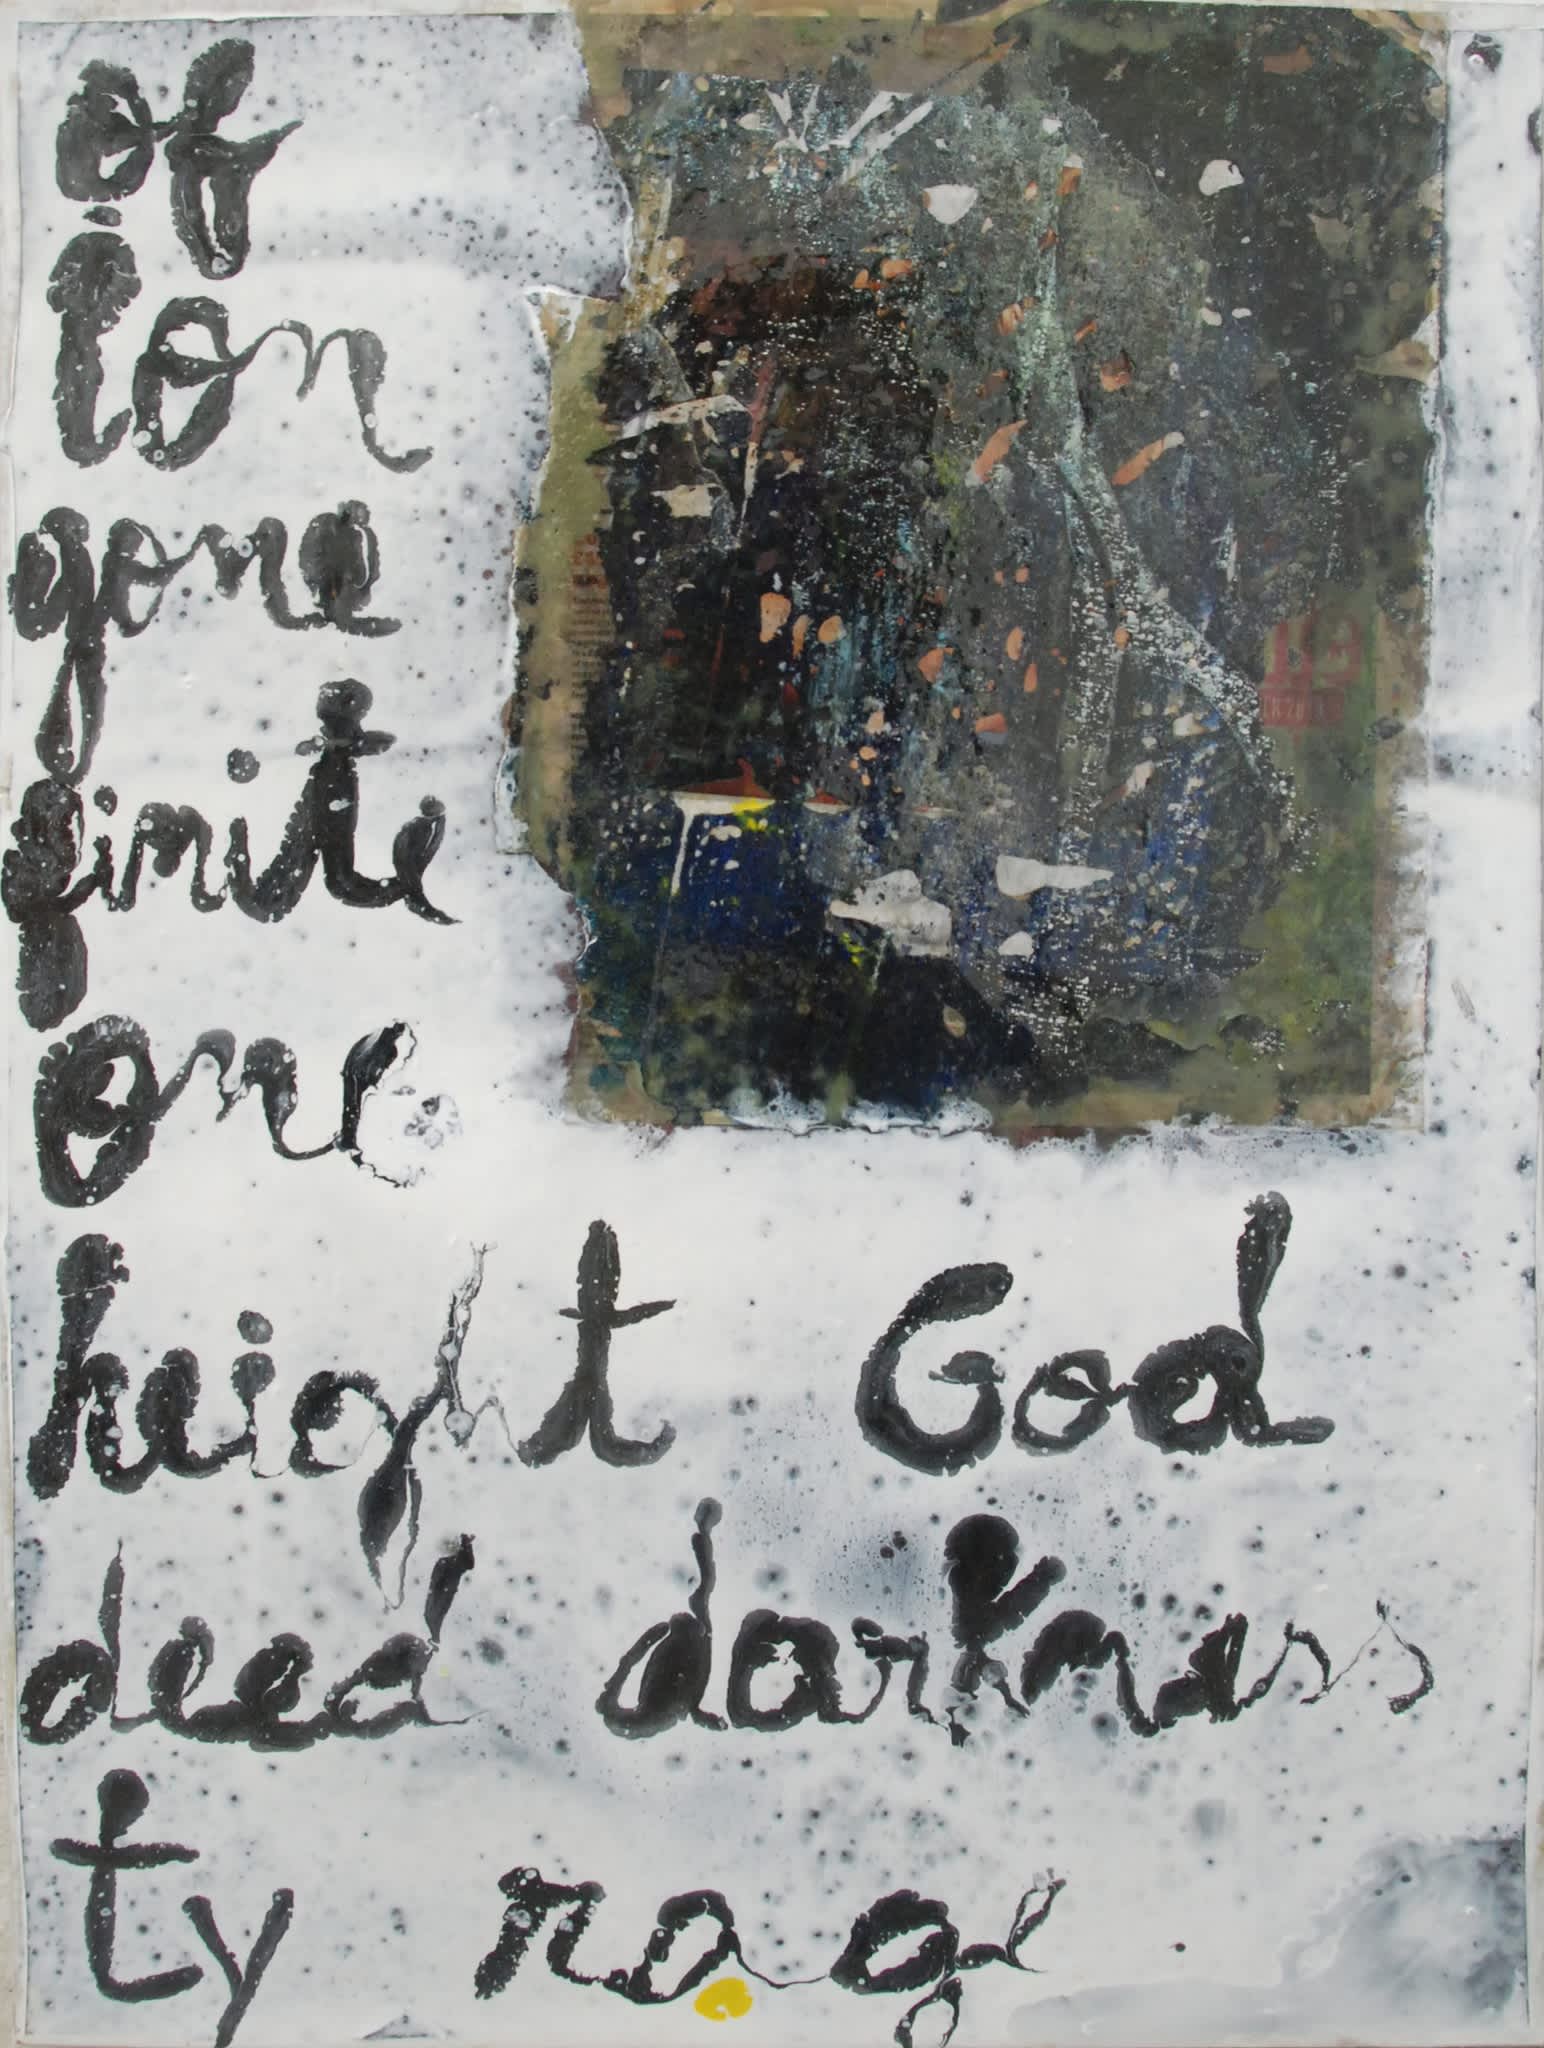 of
ion
gone
finite
one
height God
deed darkness
ty rage